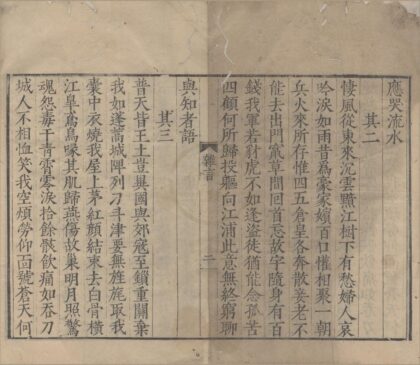 應哭流水
其二
悽風從東來沉雲黯江樹下有愁婦人哀
吟淚如雨昔為豪家嬪百口懽相聚一朝
兵火來所存惟四五倉皇各奔散妾老不
能去出門竄草間回首忘故宇隨身有百
錢我軍若豺虎不如逢盜徒猶能念孤苦
四顧何所歸投軀向江浦此意無終窮聊
與知者語
雜言
二
其三
普天皆王土豈異國與郊寇至鎖重關棄
我如蓬蒿城陴列刀斗津要無旌旄取我
囊中衣燒我屋上茅紅顏結束去白骨橫
江皐烏鳶啄其肌歸燕傷故巢明月照驚
魂怨毒干青霄零淚拾餘骸飲痛如吞刀
城人不相恤笑我空煩勞仰面號蒼天何